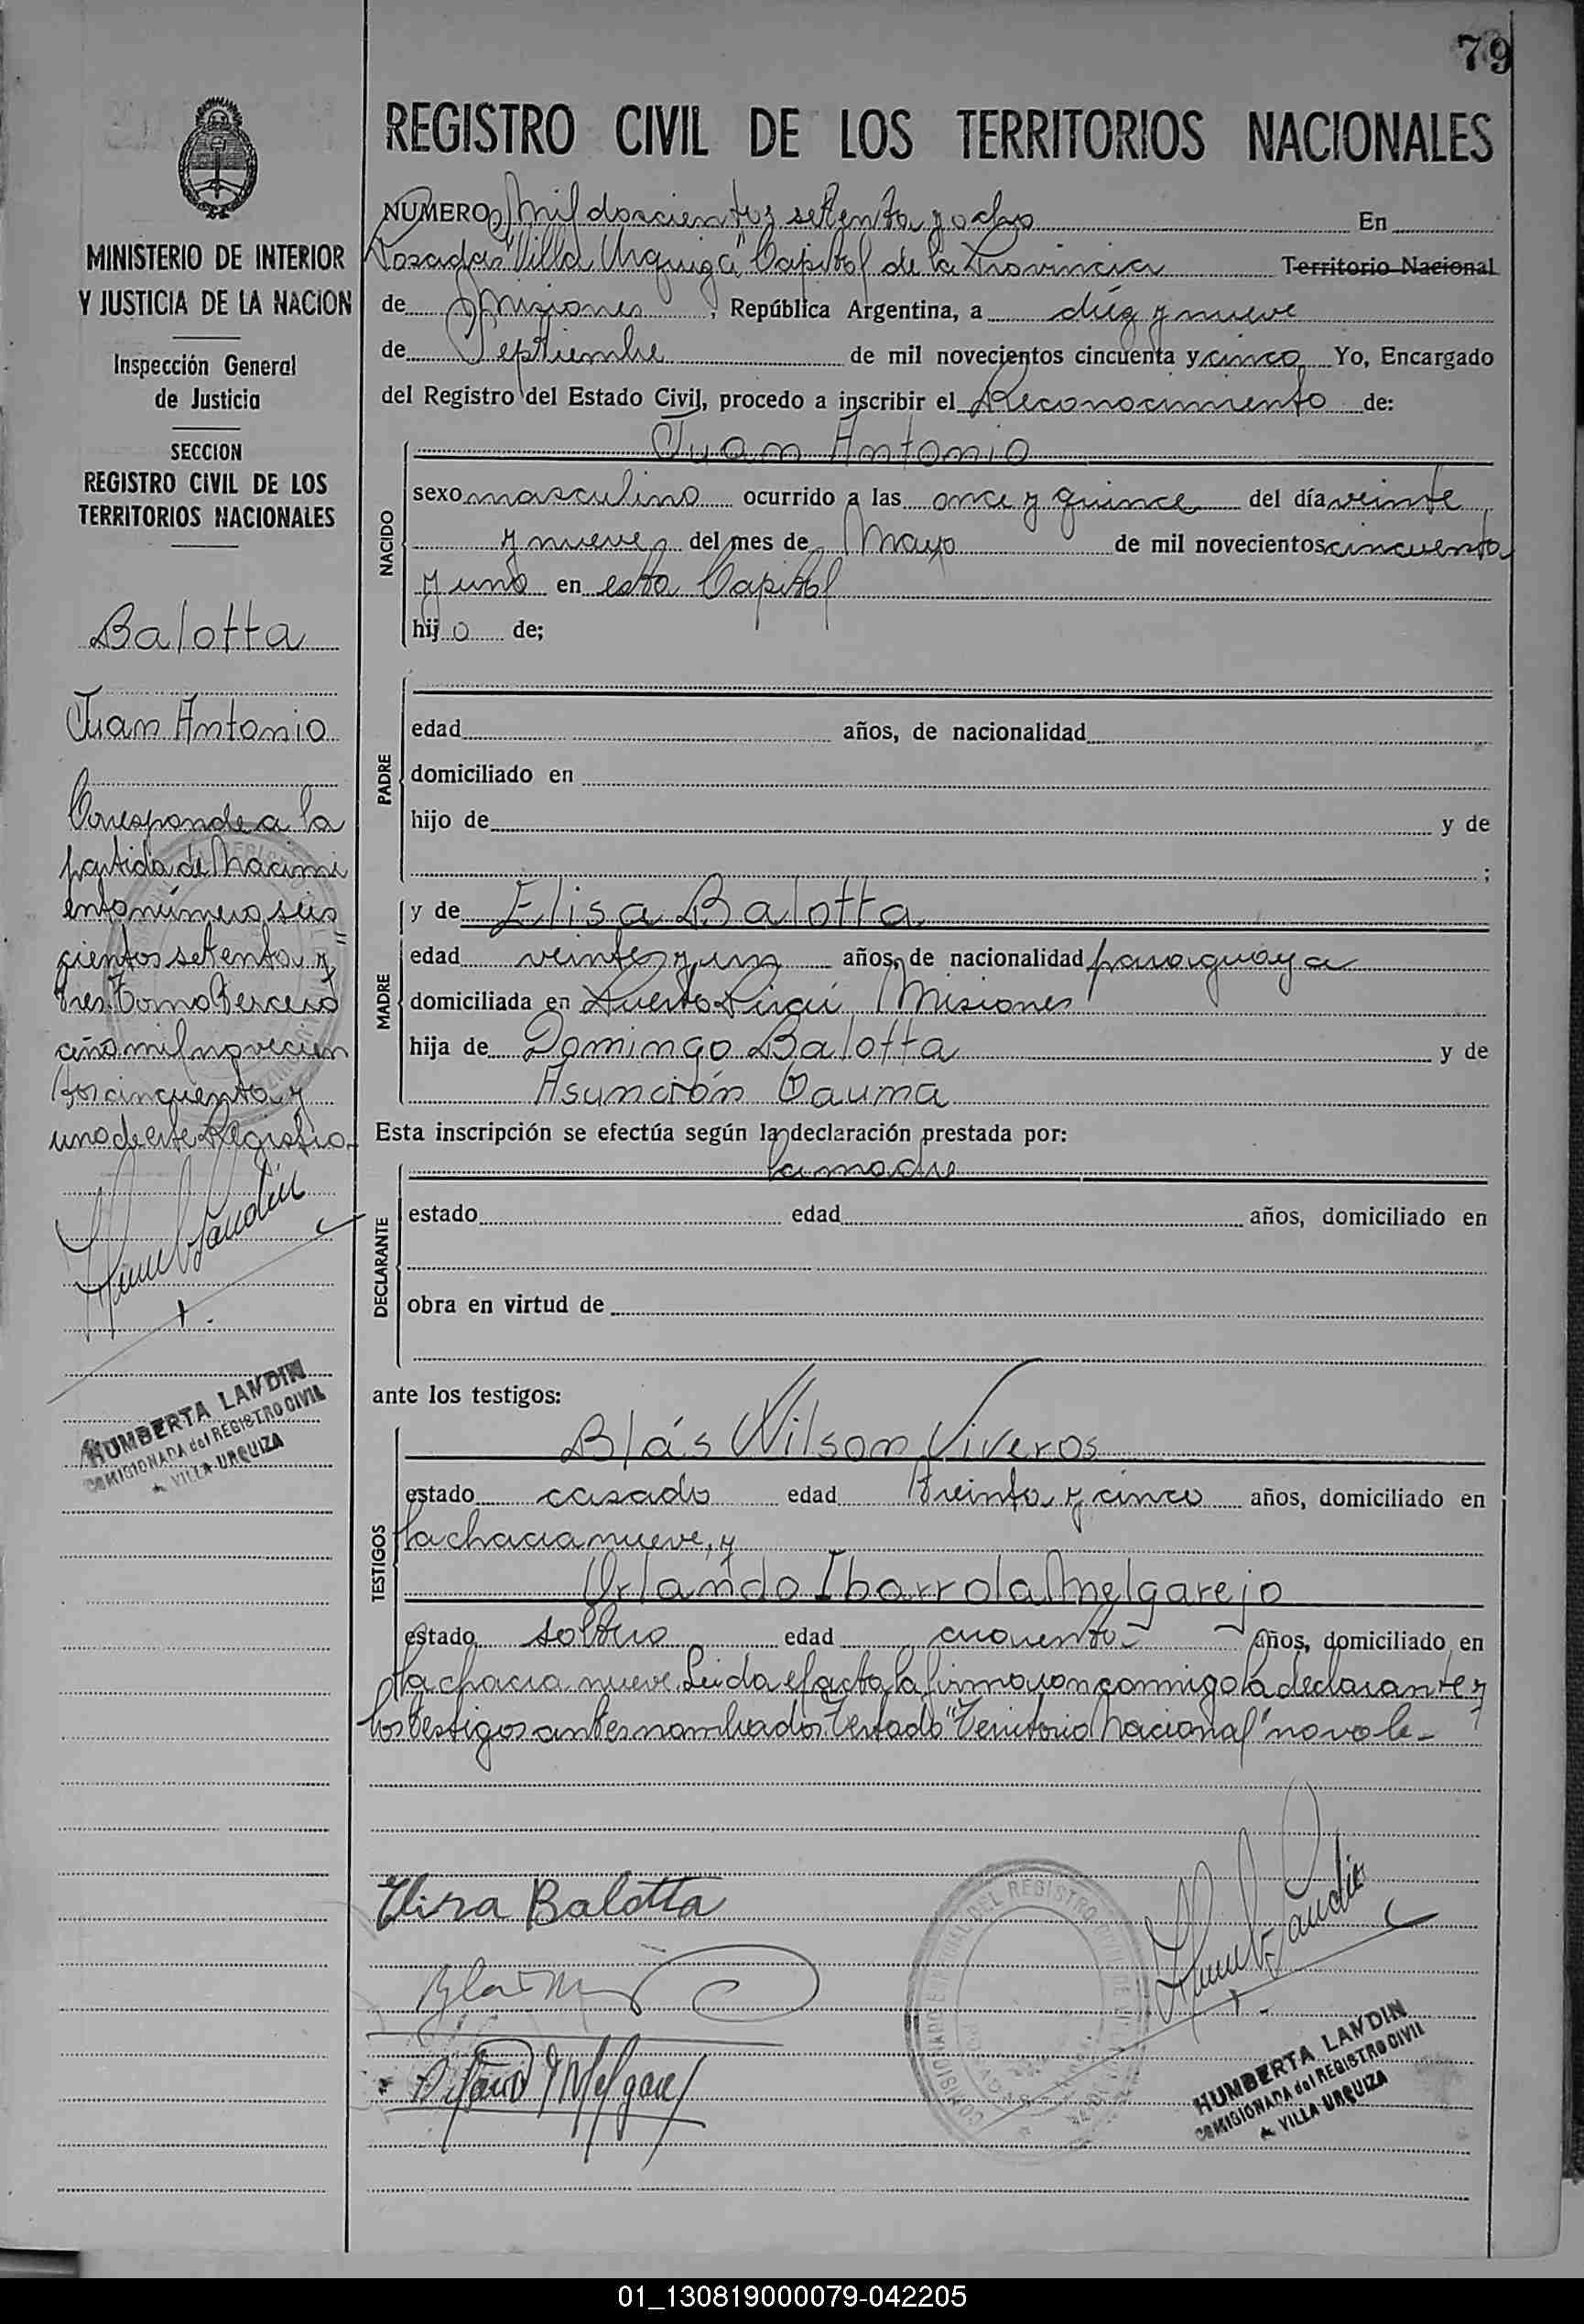 79
REGISTRO CIVIL DE LOS TERRITORIOS NACIONALES
MINISTERIO DE INTERIOR
Y JUSTICIA DE LA NACION
Inspección General
de Justicia
SECCION
REGISTRO CIVIL DE LOS
TERRITORIOS NACIONALES
Balotta
Juan Antonio
Corresponde a la
partida de Nacimi
ento número seis
cientos setenta y
tres Tomo tercero
año mil novecien
tos cincuenta y
uno de este Registro.
HUMBERTA LANDIN
COMISIONADA del REGISTRO CIVIL
VILLA URQUIZA
NUMERO Mil doscientos setenta y ocho En
Posadas "Villa Urquiza" Capital de la Provincia Territorio Nacional
de Misiones, República Argentina, a diez y nueve
de Septiembre de mil novecientos cincuenta y cinco Yo, Encargado
del Registro del Estado Civil, procedo a inscribir el Reconocimiento de:
NACIDO
Juan Antonio
sexo masculino ocurrido a las once y quince del día veinte
y nueve del mes de Mayo de mil novecientos cincuenta
y uno en esta Capital
hijo de;
PADRE
edad años, de nacionalidad
domiciliado en
hijo de y de
;
MADRE
y de Elisa Balotta
edad veinte y un años, de nacionalidad paraguaya
domiciliada en Puerto Pirai Misiones
hija de Domingo Balotta y de
Asunción Gauma
Esta inscripción se efectúa según la declaración prestada por:
DECLARANTE
la madre
estado edad años, domiciliado en
obra en virtud de
ante los testigos:
TESTIGOS
Blás Wilson Viveros
estado casado edad treinta y cinco años, domiciliado en
la chacra nueve, y
Orlando Ibarrola Melgarejo
estado soltero edad cuarenta años, domiciliado en
la chacra nueve. Leida el acta la firma con conmigo la declarante y
los testigos antes nombrados. Testado "Territorio Nacional" no vale-
Elisa Balotta
HUMBERTA LANDIN
COMISIONADA del REGISTRO CIVIL
VILLA URQUIZA
01_130819000079-042205